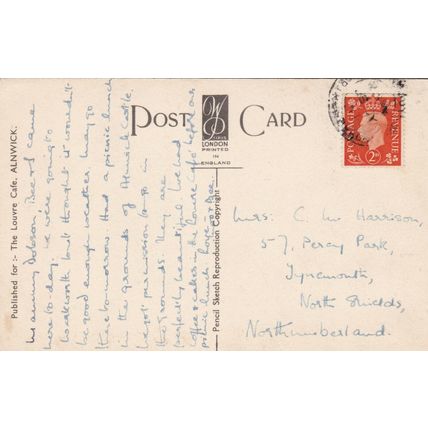 POST CARD
W
LONDON
PRINTED
IN
ENGLAND
POSTAGE
REVENUE
2D
Published for :- The Louvre Cafe, ALNWICK.
Pencil Sketch Reproduction Copyright
Dobson, Bee & I came
here to-day. We were going to
Warkworth but thought it wouldn't
be good enough weather. May go
there tomorrow. Had a picnic lunch
in the grounds of Alnwick Castle.
We got permission to go in
the grounds. They are
perfectly beautiful. We had
coffee & cakes in the Louvre Cafe before our
picnic lunch.
Mrs. C. W. Harrison,
57, Percy Park,
Tynemouth,
North Shields,
Northumberland.